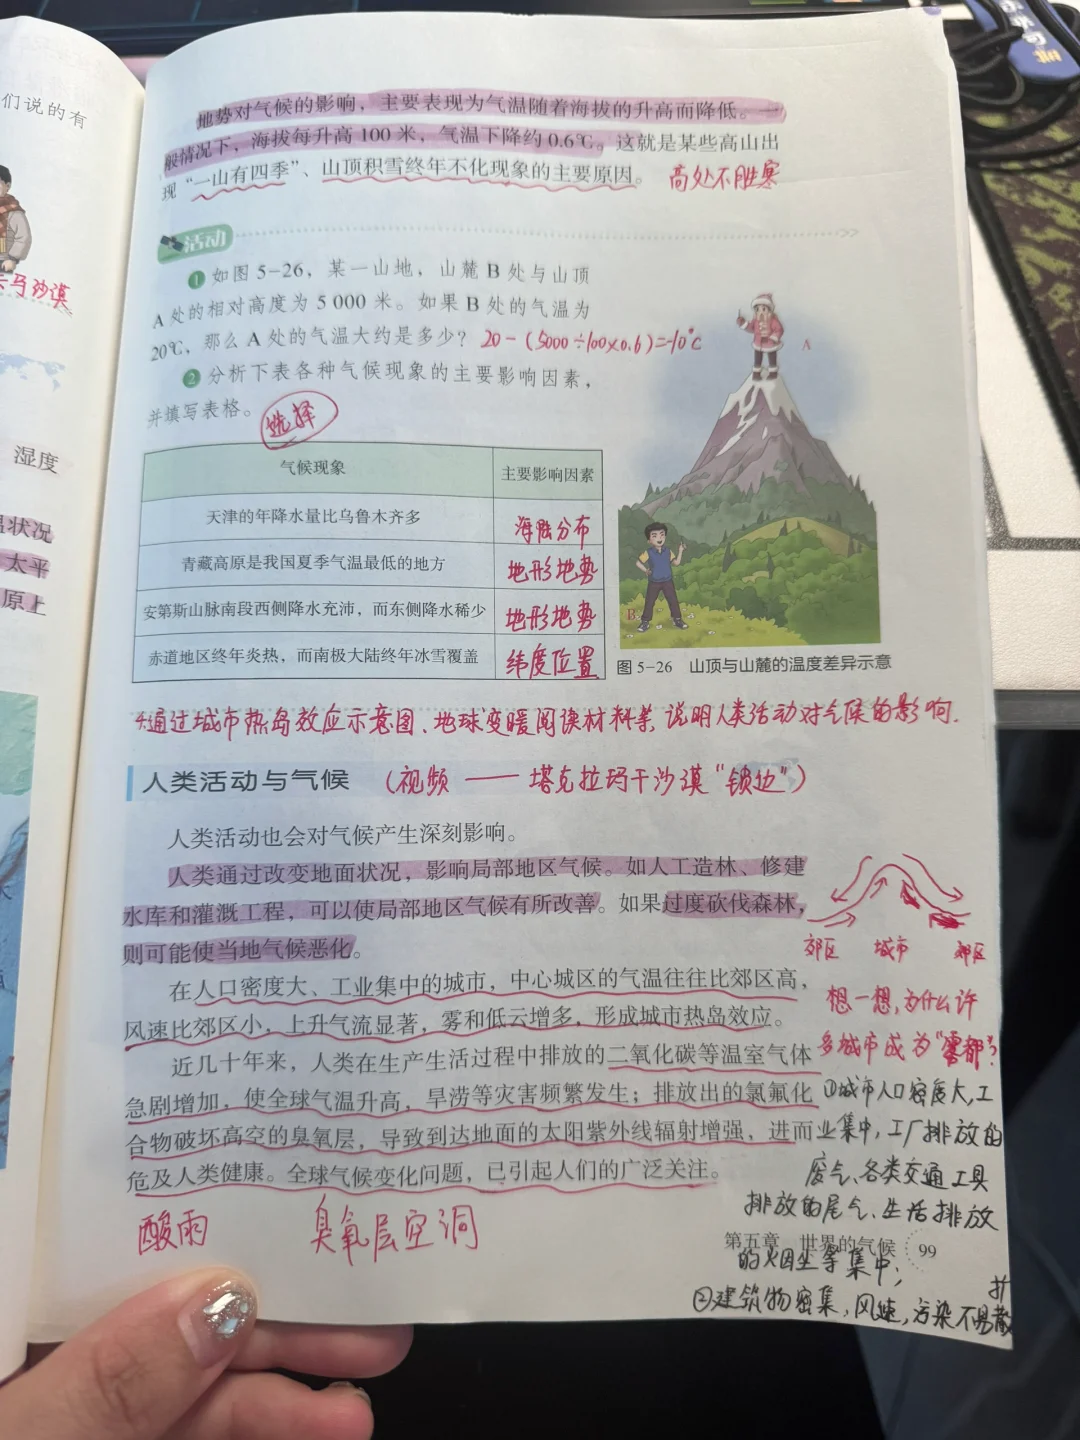 们说的有
卡马沙漠
湿度
温状况
太平
原上
地势对气候的影响，主要表现为气温随着海拔的升高而降低。一
般情况下，海拔每升高 100 米，气温下降约 0.6℃。这就是某些高山出
现“一山有四季”、山顶积雪终年不化现象的主要原因。 高处不胜寒
活动
1 如图 5-26，某一山地，山麓 B 处与山顶
A 处的相对高度为 5 000 米。如果 B 处的气温为
20℃，那么 A 处的气温大约是多少？ 20-(5000÷100×0.6)=-10℃
2 分析下表各种气候现象的主要影响因素，
并填写表格。 选择
气候现象 主要影响因素
天津的年降水量比乌鲁木齐多 海陆分布
青藏高原是我国夏季气温最低的地方 地形地势
安第斯山脉南段西侧降水充沛，而东侧降水稀少 地形地势
赤道地区终年炎热，而南极大陆终年冰雪覆盖 纬度位置
A
B
图 5-26 山顶与山麓的温度差异示意
4.通过城市热岛效应示意图、地球变暖阅读材料等，说明人类活动对气候的影响.
人类活动与气候 （视频 —— 塔克拉玛干沙漠“锁边”）
人类活动也会对气候产生深刻影响。
人类通过改变地面状况，影响局部地区气候。如人工造林、修建
水库和灌溉工程，可以使局部地区气候有所改善。如果过度砍伐森林，
则可能使当地气候恶化。
在人口密度大、工业集中的城市，中心城区的气温往往比郊区高，
风速比郊区小，上升气流显著，雾和低云增多，形成城市热岛效应。
近几十年来，人类在生产生活过程中排放的二氧化碳等温室气体
急剧增加，使全球气温升高，旱涝等灾害频繁发生；排放出的氯氟化
合物破坏高空的臭氧层，导致到达地面的太阳紫外线辐射增强，进而
危及人类健康。全球气候变化问题，已引起人们的广泛关注。
郊区 城市 郊区
想一想，为什么许
多城市成为“雾都”？
①城市人口密度大，工
业集中，工厂排放的
废气、各类交通工具
排放的尾气、生活排放
的烟尘等集中；
②建筑物密集，风速，污染不易扩散
酸雨 臭氧层空洞
第五章 世界的气候 99